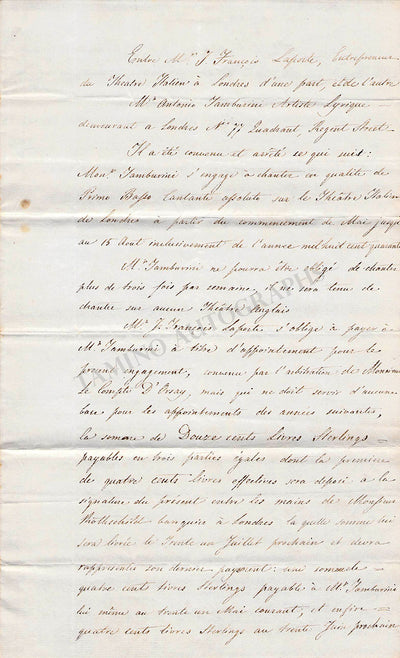 Entre Mr. J. François Laporte, Entrepreneur
du Theatre Italien à Londres d'une part, et de l'autre
Mr. Antonio Tamburini Artiste Lyrique
demeurant a Londres No. 77 Quadrant, Regent Street.
Il a été convenu et arrêté ce qui suit:
Monr. Tamburini s'engage à chanter en qualité de
Primo Basso Cantante assoluto sur le Théâtre Italien
de Londres à partir du commencement de Mai jusque
au 15 Aout inclusivement de l'année mil huit cent quarante
Mr. Tamburini ne pourra être obligé de chanter
plus de trois fois par semaine, et ne sera tenu de
chanter sur aucun Théâtre Anglais
Mr. J. François Laporte s'oblige à payer à
Mr. Tamburini à titre d'appointement pour le
présent engagement, convenu par l'arbitration de Monsieur
Le Compte D'Orsay, mais qui ne doit servir d'aucune
base pour les appointements des années suivantes,
la somme de Douze cents Livres Sterlings =
payables en trois parties égales dont la première
de quatre cents livres effectives sera déposé a la
signature du présent entre les mains de Monsieur
Rothschild banquier à Londres la quelle somme lui
sera livrée le Trente un Juillet prochain et devra
représenter son dernier payment: une somme de
quatre cents livres Sterlings payable à Mr. Tamburini
lui même au trente un Mai courant, et enfin =
quatre cents livres Sterlings au trente Juin prochain
TAMINO AUTOGRAPHS